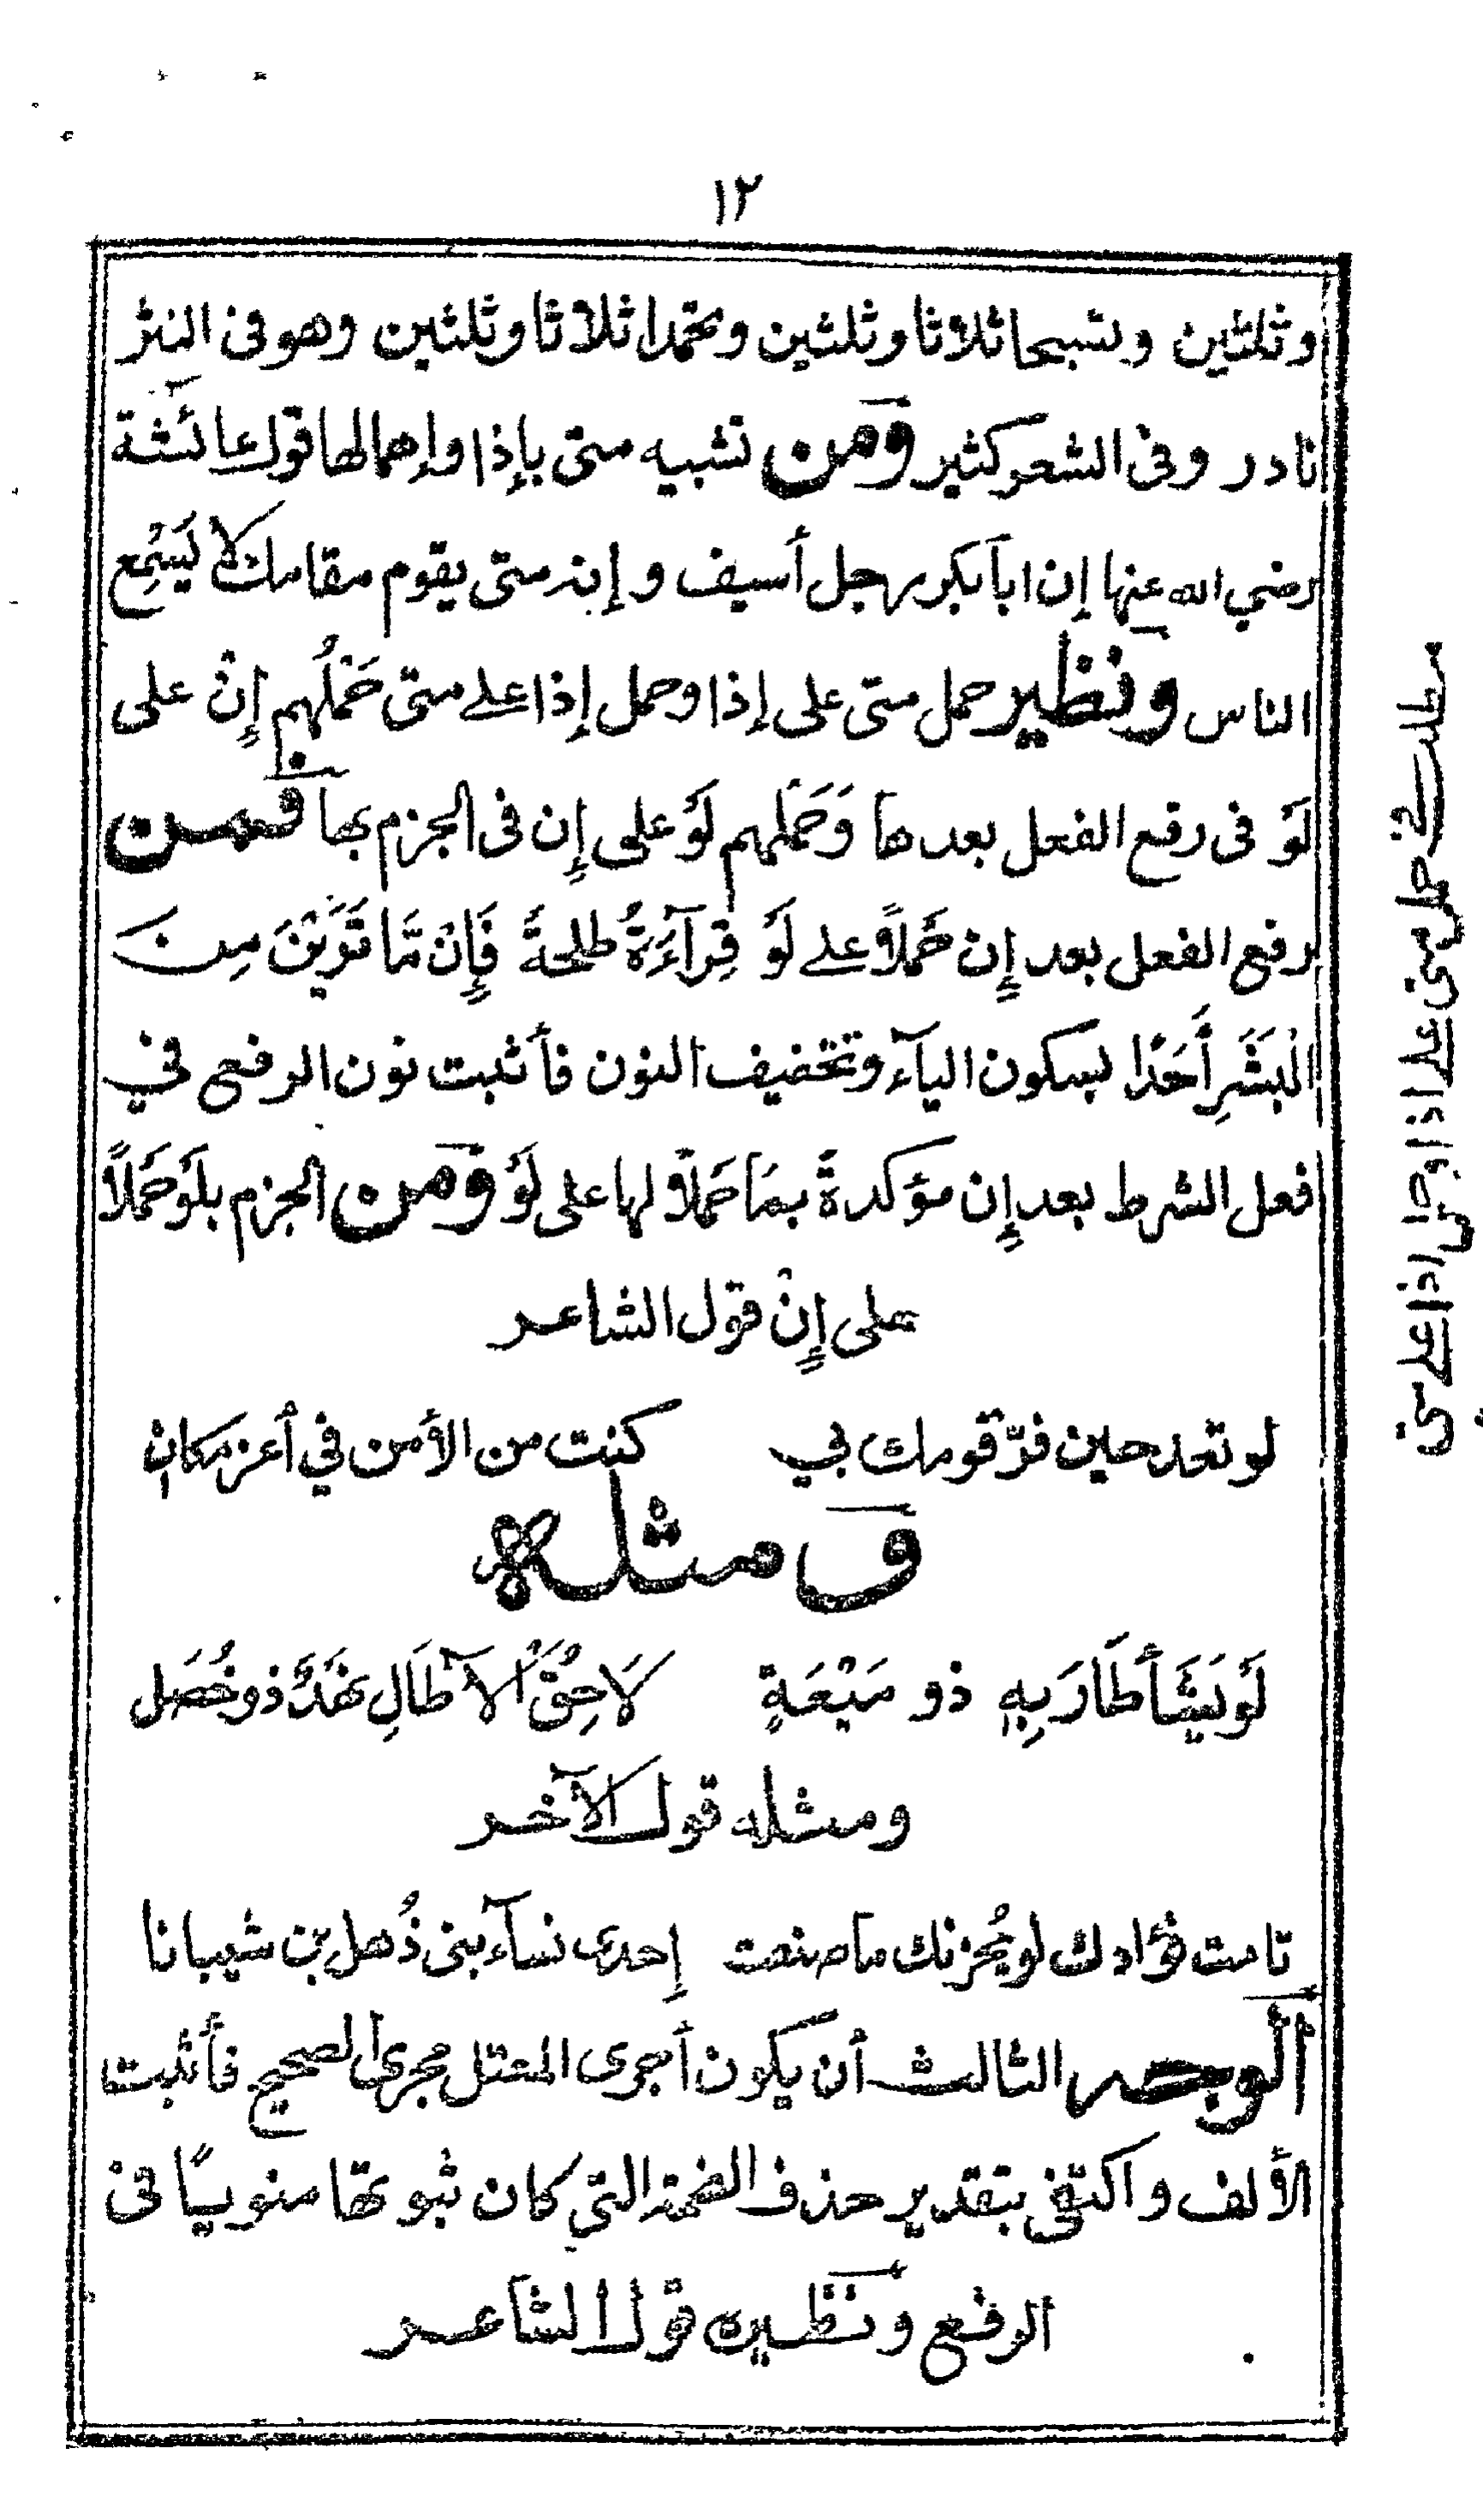 ١٢
وثلثين وتسبحا ثلاثا وثلثين وتحمدا ثلاثا وثلثين وهو فى النثر
نادر وفى الشعر كثير ومن تشبيه متى بإذا وإهمالها قول عائشة
رضي الله عنها إن ابا بكر رجل أسيف وإنه متى يقوم مقامك لا يُسْمِع
الناس ونظير حمل متى على إذا وحمل إذا على متى حَمْلُهم إِنْ على
لَوْ فى رفع الفعل بعدها وَحَمْلهم لَوْ على إِن فى الجزم بها فمن
رفع الفعل بعد إِن حَمْلاً على لَوْ قِرآءَةُ طلحةَ فَإِنْ مَّا تَرَيْنَ مِنَ
الْبَشَرِ أَحَدًا بسكون اليآء وتخفيف النون فأثبت نون الرفع في
فعل الشرط بعد إِن مؤكدةً بمَا حَملاً لها على لَوْ ومن الجزم بلَوْ حَمَلاً
على إِنْ قول الشاعر
لو تعد حين فرّ قومك بي كنت من الأمن في أعز مكان
ومثله
لَوْ يَشَأْ طَارَ بِهِ ذو مَيْعَةٍ لَاحِقُ الآطَالِ نَهْدٌ ذو خُصَل
ومثله قول الآخر
تامت فؤادك لو يُحزنك ما صنعت إحدى نسآء بنى ذُهل بن شيبانا
الوجه الثالث أن يكون أجرى المعتل مجرى الصحيح فأثبت
الألف واكتفى بتقدير حذف الضمة التي كان ثبوتها منويّا فى
الرفع ونظيره قول الشاعر